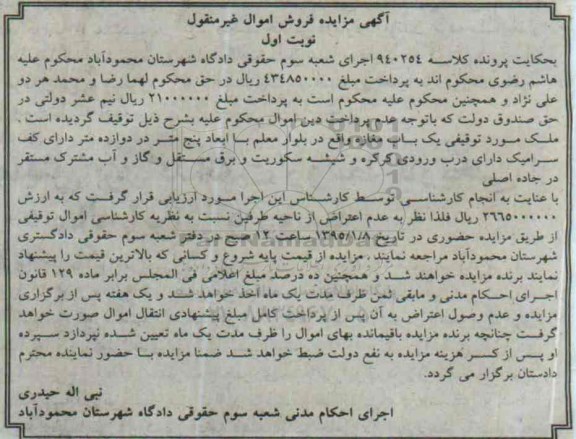 آگهی مزایده فروش اموال غیرمنقول
نوبت اول
بحکایت پرونده کلاسه ۹۴۰۲۵۴ اجرای شعبه سوم حقوقی دادگاه شهرستان محمودآباد محکوم علیه
هاشم رضوی محکوم اند به پرداخت مبلغ ۴۳۴۸۵۰۰۰۰ ریال در حق محکوم لهما رضا و محمد هر دو
علی نژاد و همچنین محکوم علیه محکوم است به پرداخت مبلغ ۲۱۰۰۰۰۰۰ ریال نیم عشر دولتی در
حق صندوق دولت که باتوجه عدم پرداخت دین اموال محکوم علیه بشرح ذیل توقیف گردیده است .
ملک مورد توقیفی یک باب مغازه واقع در بلوار معلم با ابعاد پنج متر در دوازده متر دارای کف
سرامیک دارای درب ورودی کرکره و شیشه سکوریت و برق مستقل و گاز و آب مشترک مستقر
در جاده اصلی
با عنایت به انجام کارشناسی توسط کارشناس این اجرا مورد ارزیابی قرار گرفت که به ارزش
۲۶۶۵۰۰۰۰۰۰ ریال فلذا نظر به عدم اعتراض از ناحیه طرفین نسبت به نظریه کارشناسی اموال توقیفی
از طریق مزایده حضوری در تاریخ ۱۳۹۵/۱/۸ ساعت ۱۲ صبح در دفتر شعبه سوم حقوقی دادگستری
شهرستان محمودآباد مراجعه نمایند . مزایده از قیمت پایه شروع و کسانی که بالاترین قیمت را پیشنهاد
نمایند برنده مزایده خواهند شد و همچنین ده درصد مبلغ اعلامی فی المجلس برابر ماده ۱۲۹ قانون
اجرای احکام مدنی و مابقی ثمن ظرف مدت یک ماه اخذ خواهد شد و یک هفته پس از برگزاری
مزایده و عدم وصول اعتراض به آن پس از پرداخت کامل مبلغ پیشنهادی انتقال اموال صورت خواهد
گرفت چنانچه برنده مزایده باقیمانده بهای اموال را ظرف مدت یک ماه تعیین شده نپردازد سپرده
او پس از کسر هزینه مزایده به نفع دولت ضبط خواهد شد ضمنا مزایده با حضور نماینده محترم
دادستان برگزار می گردد.
نبی اله حیدری
اجرای احکام مدنی شعبه سوم حقوقی دادگاه شهرستان محمودآباد